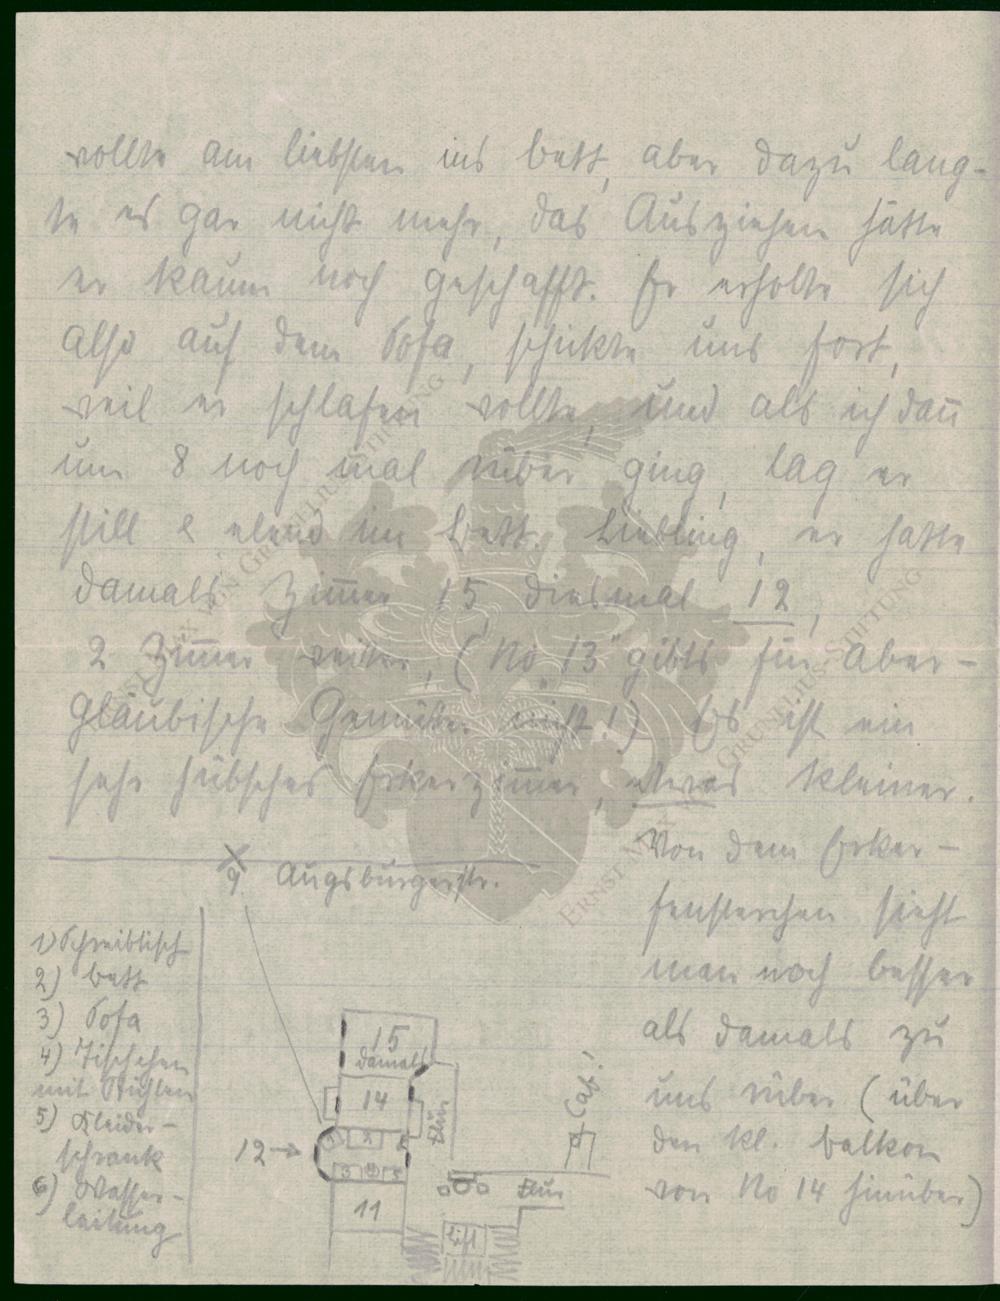 wollte am liebsten ins Bett, aber dazu lang-
te es gar nicht mehr, das Ausziehen hätte
er kaum noch geschafft. Er erholte sich
also auf dem Sofa, schickte uns fort,
weil er schlafen wollte, und als ich dan̄
um 8 noch mal rüber ging, lag er
still & elend im Bett. Liebling, er hatte
damals Zim̄er 15, diesmal 12,
2 Zim̄er weiter, (No „13" gibts für Aber-
gläubische Gemüter nicht!) Es ist ein
sehr hübsches Erkerzim̄er, etwas kleiner.
Von dem Erker-
fensterchen sieht
man noch besser
als damals zu
uns rüber (über
den kl. Balkon
von No 14 hinüber)
9 Augsburgerstr.
1) Schreibtisch
2) Bett
3) Sofa
4) Tischchen
mit Stühlen
5) Kleider-
schrank
6) Wasser-
leitung
15
damals
14
Flur
12 →
1 2
3
11
Flur
Lift
ERNST MAX VON GRUNELIUS STIFTUNG
ERNST MAX VON GRUNELIUS-STIFTUNG